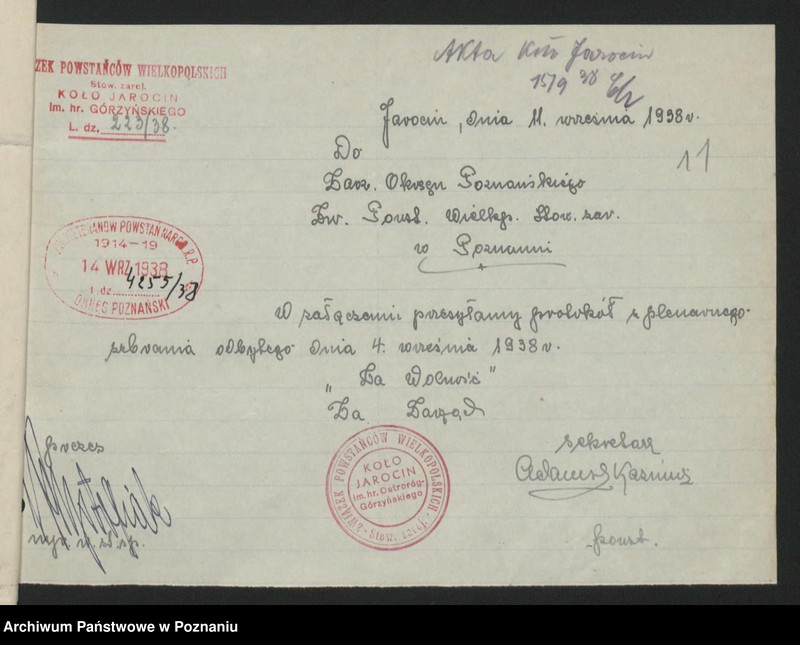 ZEK POWSTAŃCÓW WIELKOPOLSKICH
Stow. zarej.
KOŁO JAROCIN
Im. hr. GÓRZYŃSKIEGO
L. dz. 223/38.
Akta Koło Jarocin
15/9 38
Jarocin, dnia 11. września 1938 r.
11
Do
Zarz. Okręgu Poznańskiego
Zw. Powst. Wielkp. Stow. zar.
w Poznaniu
1914-19
14 WRZ. 1938
L. dz. 4255/38
OKRĘG POZNAŃSKI
W załączeniu przesyłamy protokół z plenarnego
zebrania odbytego dnia 4. września 1938 r.
„Za Wolność”
Za Zarząd
prezes
sekretarz
ZWIĄZEK POWSTAŃCÓW WIELKOPOLSKICH
KOŁO
JAROCIN
im. hr. Ostroróg-
Górzyńskiego
Stow. zarej.
Kazimierz
powst.
Archiwum Państwowe w Poznaniu